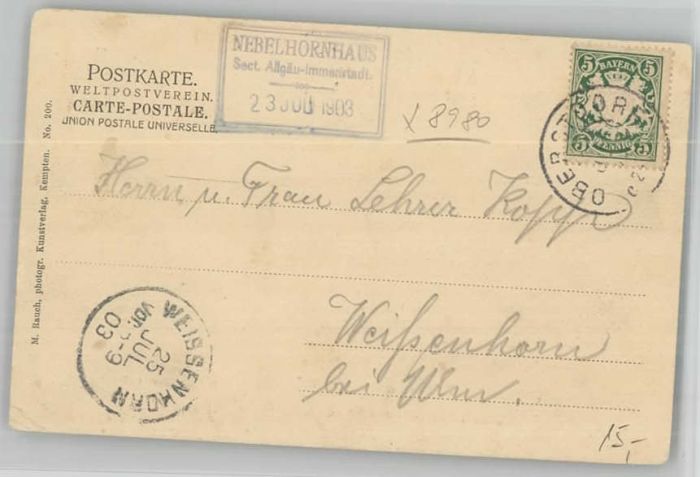 POSTKARTE.
WELTPOSTVEREIN.
CARTE-POSTALE.
UNION POSTALE UNIVERSELLE.
NEBELHORNHAUS
Sect. Allgäu-Immenstadt.
23 JUL 1903
x 8980
5 BAYERN 5
5 PFENNIG 5
OBERSTDORF
Herrn u. Frau Lehrer Kopp
Weißenhorn
bei Ulm.
WEISSENHORN
VOR. 8-9
25
JUL
03
M. Rauch, photogr. Kunstverlag, Kempten. No. 200.
15,-